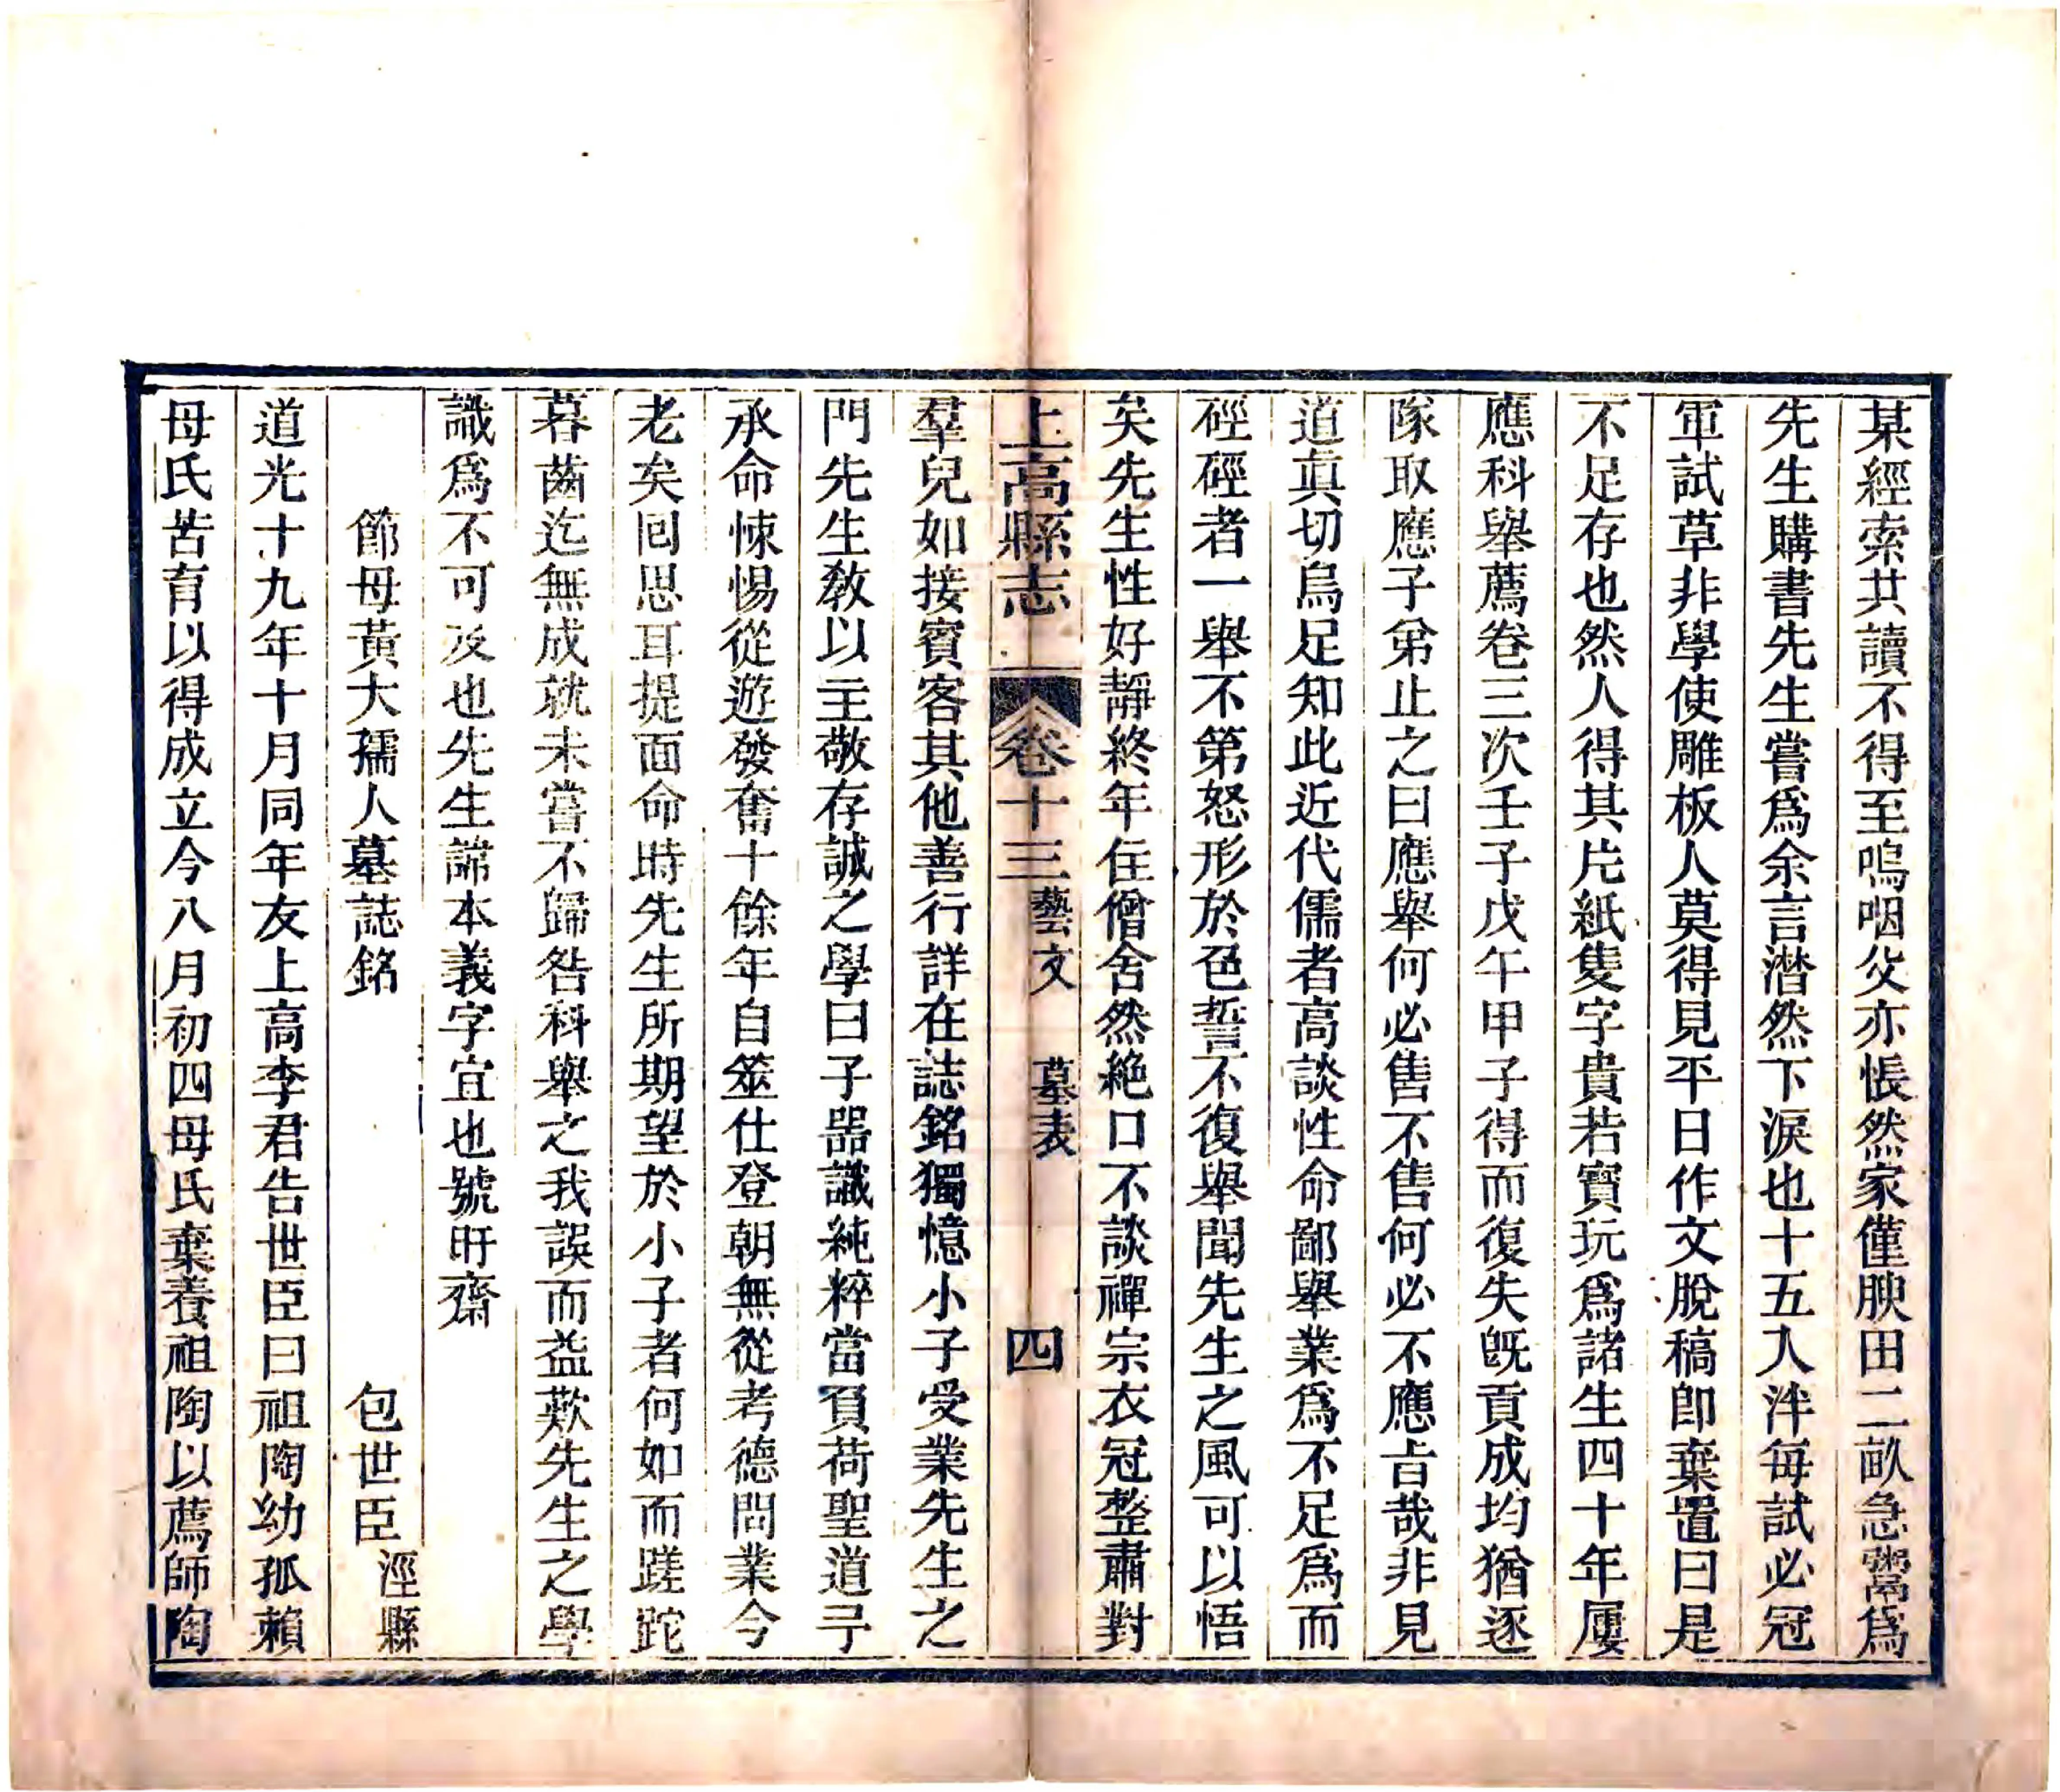 某經索共讀不得至嗚咽父亦悵然家僅腴田二畝急鬻爲
先生購書先生嘗爲余言潸然下淚也十五入泮每試必冠
軍試草非學使雕板人莫得見平日作文脫稿卽棄置曰是
不足存也然人得其片紙隻字貴若寶玩爲諸生四十年屢
應科舉薦卷三次壬子戊午甲子得而復失旣貢成均猶逐
隊取應子弟止之曰應舉何必售不售何必不應旨哉非見
道真切烏足知此近代儒者高談性命鄙舉業爲不足爲而
硜硜者一舉不第怒形於色誓不復舉聞先生之風可以悟
矣先生性好靜終年住僧舍然絕口不談禪宗衣冠整肅對
上高縣志 卷十三 藝文 墓表 四
羣兒如接賓客其他善行詳在誌銘獨憶小子受業先生之
門先生敎以主敬存誠之學曰子器識純粹當負荷聖道予
承命悚惕從遊發奮十餘年自筮仕登朝無從考德問業今
老矣囘思耳提面命時先生所期望於小子者何如而蹉跎
暮齒迄無成就未嘗不歸咎科舉之我誤而益歎先生之學
識爲不可及也先生諱本義字宜也號旰齋
節母黃大孺人墓誌銘 包世臣 涇縣
道光十九年十月同年友上高李君告世臣曰祖陶幼孤賴
母氏苦育以得成立今八月初四母氏棄養祖陶以薦師陶